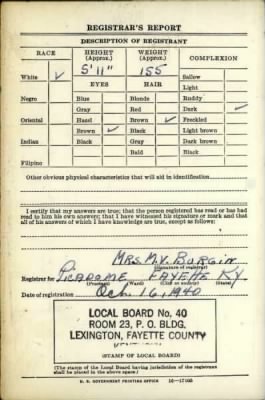 REGISTRAR'S REPORT
DESCRIPTION OF REGISTRANT
RACE HEIGHT (Approx.) WEIGHT (Approx.) COMPLEXION
White ✓ 5' 11" 155 Sallow
EYES HAIR Light
Negro Blue Blonde Ruddy
Gray Red Dark ✓
Oriental Hazel Brown ✓ Freckled
Brown ✓ Black Light brown
Indian Black Gray Dark brown
Bald Black
Filipino
Other obvious physical characteristics that will aid in identification
I certify that my answers are true; that the person registered has read or has had
read to him his own answers; that I have witnessed his signature or mark and that
all of his answers of which I have knowledge are true, except as follows:
Mrs. M. V. Burgin
(Signature of registrar)
Registrar for Picadome Fayette Ky
(Precinct) (Ward) (City or county) (State)
Date of registration Oct. 16, 1940
LOCAL BOARD No. 40
ROOM 23, P. O. BLDG.
LEXINGTON, FAYETTE COUNTY
(STAMP OF LOCAL BOARD)
(The stamp of the Local Board having jurisdiction of the registrant
shall be placed in the above space.)
U. S. GOVERNMENT PRINTING OFFICE 16—17105